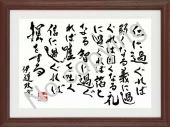 仁に過ぐれば
弱くなる義に過
ぐれば固くなる礼
に過ぐれば諂と
なる智に過ぐ
れば嘘を吐く
信に過ぐれば
損をする
伊達政宗